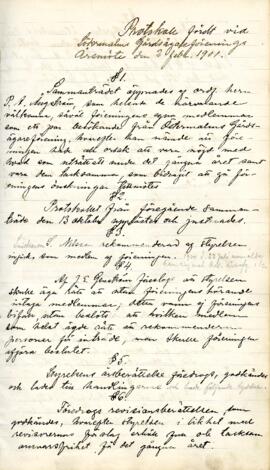 Protokoll fördt vid
Södermalms Gårdsägareförenings
Årsmöte den 2 febr. 1901.
§1.
Sammanträdet öppnades af ordf. herr
P. A. Ångström, som helsade de närvarande
välkomna, såväl föreningens egna medlemmar
som ett par besökande från Östermalms Gårds-
ägareförening, hvarefter han nämnde att för-
eningen hade all orsak att vara nöjd med
hvad som uträttats under det gångna året samt
vara dem tacksamma som bidragit att gå för-
eningens önskningar till mötes
§2.
Protokollet från föregående samman-
träde den 13 oktober upplästes och justerades.
§3.
rekommenderad af styrelsen
som medlem af föreningen.
§4.
Af J. E. föreslogs att styrelsen
skulle äga rätt att utan föreningens hörande
intaga medlemmar, detta vann ej föreningens
bifall utan beslöts att hvilken medlem
som helst ägde rätt att rekommendera
personer till inträde, men skulle föreningen
afgöra beslutet.
§5.
Styrelsens årsberättelse föredrogs, godkändes
och lades till handlingarne
§6.
Föredrogs revisionsberättelsen som
godkändes, hvarefter styrelsen i likhet med
revisorernas förslag erhöll full och tacksam
ansvarsfrihet för det gångna året.